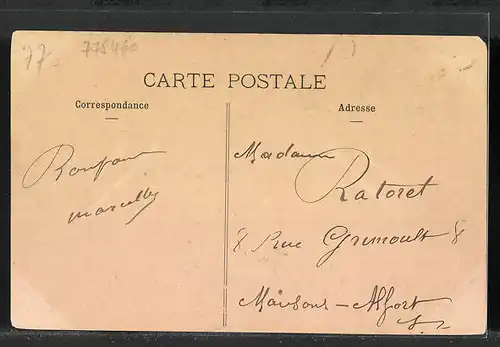 77.
775460
CARTE POSTALE
Correspondance
Adresse
Bonjour
Marcelle
Madame
Ratoret
8 Rue Grimoult 8
Maisons-Alfort